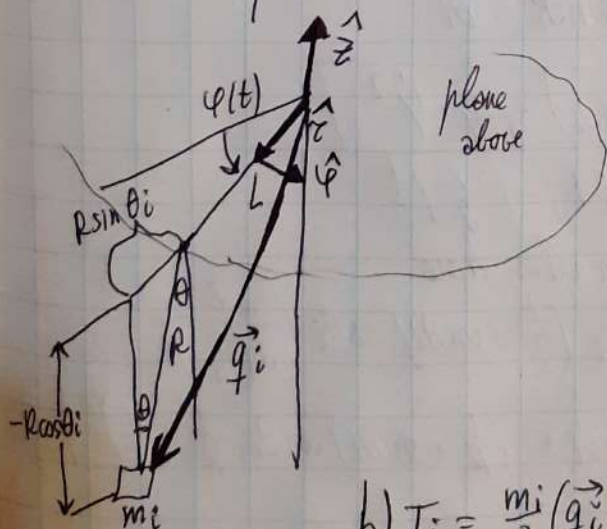 ẑ
φ(t)
plane
above
r̂
φ̂
L
R sin θi
θ
R
q⃗i
-Rcosθi
θ
mi
b) Ti = mi (q⃗i